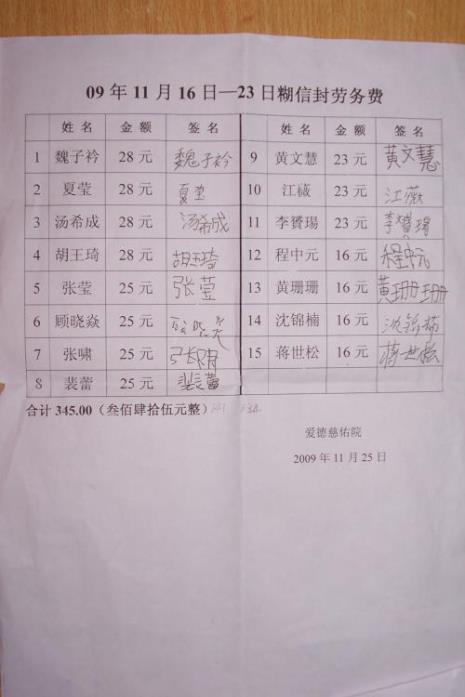 09 年 11 月 16 日—23 日糊信封劳务费
姓 名 金 额 签 名 姓 名 金 额 签 名
1 魏子衿 28 元 魏子衿 9 黄文慧 23 元 黄文慧
2 夏莹 28 元 夏莹 10 江薇 23 元 江薇
3 汤希成 28 元 汤希成 11 李赟瑒 23 元 李赟瑒
4 胡王琦 28 元 胡王琦 12 程中元 16 元 程中元
5 张莹 25 元 张莹 13 黄珊珊 16 元 黄珊珊
6 顾晓焱 25 元 14 沈锦楠 16 元 沈锦楠
7 张啸 25 元 15 蒋世松 16 元 蒋世松
8 裴蕾 25 元 裴蕾
合计 345.00（叁佰肆拾伍元整）
爱德慈佑院
2009 年 11 月 25 日